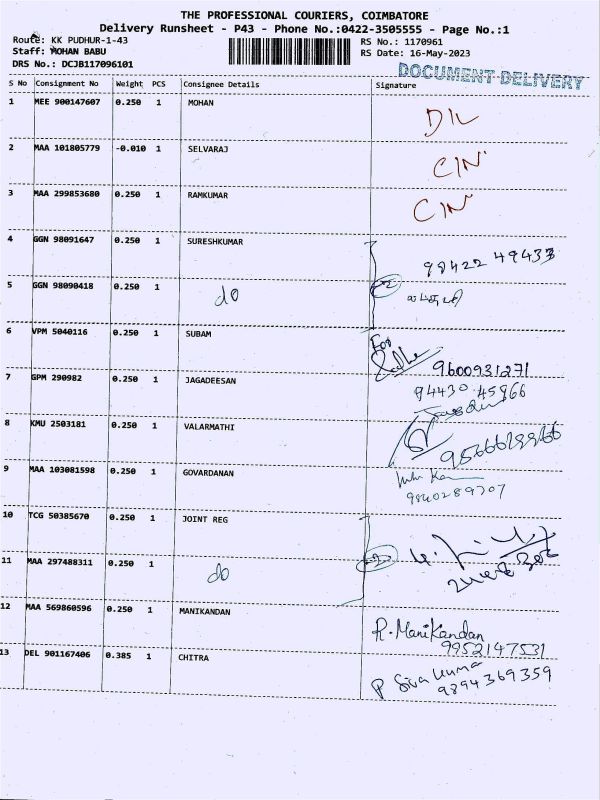 THE PROFESSIONAL COURIERS, COIMBATORE
Delivery Runsheet - P43 - Phone No.:0422-3505555 - Page No.:1
Route: KK PUDHUR-1-43
RS No.: 1170961
Staff: MOHAN BABU
RS Date: 16-May-2023
DRS No.: DCJB117096101
DOCUMENT DELIVERY
S No Consignment No Weight PCS Consignee Details Signature
1 MEE 900147607 0.250 1 MOHAN D/L
2 MAA 101805779 -0.010 1 SELVARAJ CIN
3 MAA 299853680 0.250 1 RAMKUMAR CIN
4 GGN 98091647 0.250 1 SURESHKUMAR 98422 49433
5 GGN 98090418 0.250 1 do
6 VPM 5040116 0.250 1 SUBAM For 9600931271
7 GPM 290982 0.250 1 JAGADEESAN 94430 45966
8 KMU 2503181 0.250 1 VALARMATHI
9 MAA 103081598 0.250 1 GOVARDANAN 9840289707
10 TCG 50385670 0.250 1 JOINT REG
11 MAA 297488311 0.250 1 do
12 MAA 569860596 0.250 1 MANIKANDAN R. Manikandan
9952147531
13 DEL 901167406 0.385 1 CHITRA P Siva kumar
9894369359